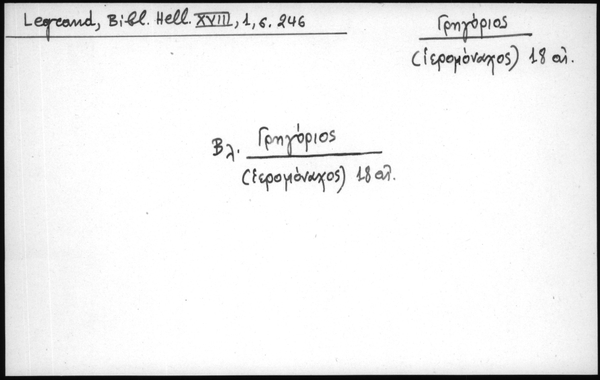 Legrand, Bibl. Hell. XVIII, 1, σ. 246
Γρηγόριος
(ἱερομόναχος) 18 αἰ.
Βλ. Γρηγόριος
(ἱερομόναχος) 18 αἰ.